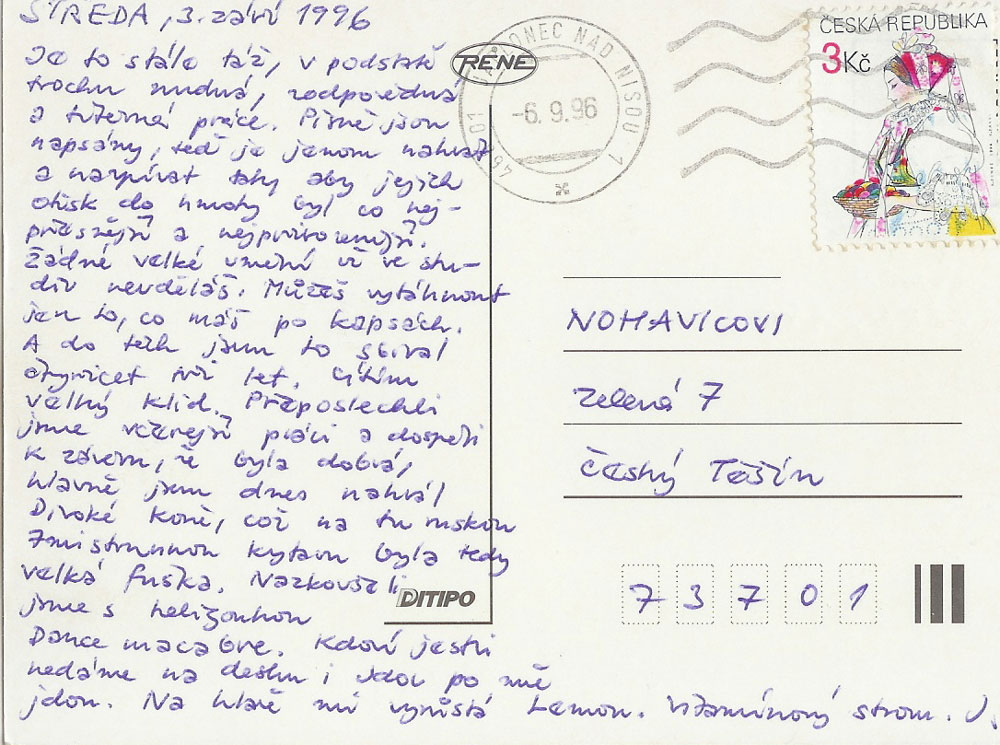 STŘEDA, 3. září 1996
Je to stále táž, v podstatě
trochu nudná, zodpovědná
a titěrná práce. Písně jsou
napsány, teď je jenom nahrát
a nazpívat tak, aby jejich
otisk do hmoty byl co nej-
přesnější a nejpřirozenější.
Žádné velké umění už ve stu-
diu neuděláš. Můžeš vytáhnout
jen to, co máš po kapsách.
A do těch jsem to sbíral
čtyřicet tři let. Cítím
velký klid. Přeposlechli
jsme včerejší práci a dospěli
k závěru, že byla dobrá,
hlavně jsem dnes nahrál
Divoké koně, což na tu ruskou
7mistrunnou kytaru byla tedy
velká fuška. Nazkoušeli
jsme s heligonkou
Dance macabre. Kdoví jestli
nedáme na desku i Jdou po mně
jdou. Na hlavě mi vyrůstá Lemon. Vitamínový strom. J.
RENE
46 01 JABLONEC NAD NISOU 1
-6.9.96
ČESKÁ REPUBLIKA
3Kč
NOHAVICOVI
Zelená 7
Český Těšín
73701
DITIPO